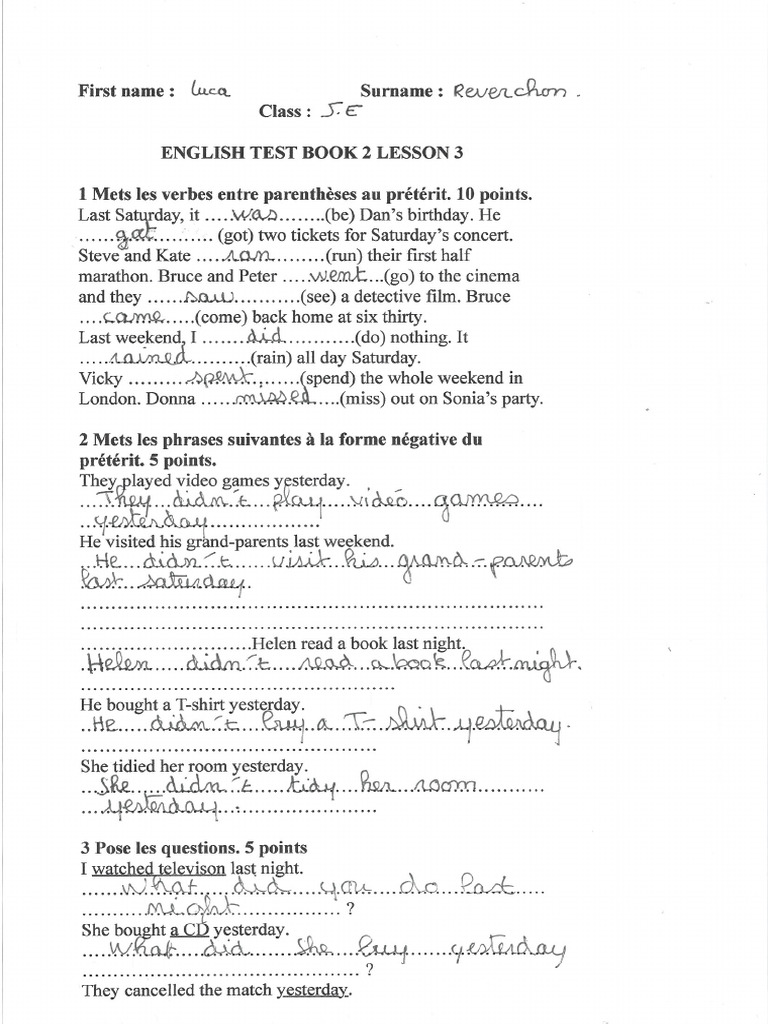 First name : Luca Surname : Reverchon .
Class : 5.E
ENGLISH TEST BOOK 2 LESSON 3
1 Mets les verbes entre parenthèses au prétérit. 10 points.
Last Saturday, it ....was........(be) Dan's birthday. He
......got........... (got) two tickets for Saturday's concert.
Steve and Kate ......ran..........(run) their first half
marathon. Bruce and Peter .....went...(go) to the cinema
and they .......saw............(see) a detective film. Bruce
....came.....(come) back home at six thirty.
Last weekend, I .......did............(do) nothing. It
.....rained..........(rain) all day Saturday.
Vicky ..........spent.......(spend) the whole weekend in
London. Donna .....missed.....(miss) out on Sonia's party.
2 Mets les phrases suivantes à la forme négative du
prétérit. 5 points.
They played video games yesterday.
....They...didn't...play....vidéo....games....
..yesterday..................
He visited his grand-parents last weekend.
..He....didn't.....visit his grand-parents
last saturday.
..................................................................
..................................................................
.........................Helen read a book last night.
.Helen....didn't....read..a book last night.
.............................................
He bought a T-shirt yesterday.
..He.....didn't...buy a T-shirt yesterday.
..........................................
She tidied her room yesterday.
...She....didn't....tidy her room..........
...yesterday....................
3 Pose les questions. 5 points
I watched televison last night.
......What....did....you do last....
.........night............... ?
She bought a CD yesterday.
....What....did......she buy......yesterday
....................................... ?
They cancelled the match yesterday.